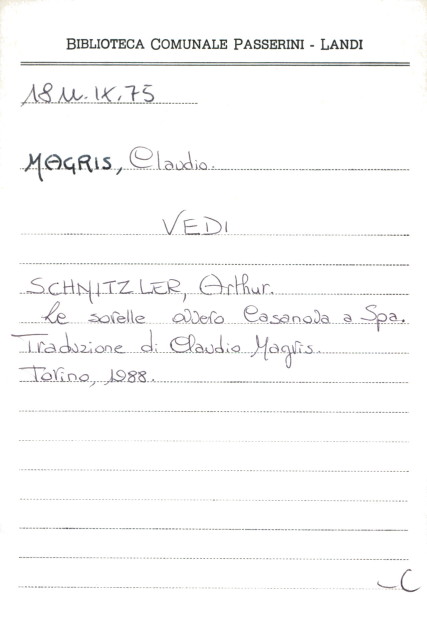 BIBLIOTECA COMUNALE PASSERINI - LANDI
18 U. IX. 75
MAGRIS, Claudio.
VEDI
SCHNITZLER, Arthur.
Le sorelle ovvero Casanova a Spa.
Traduzione di Claudio Magris.
Torino, 1988.